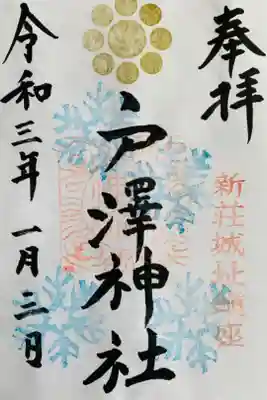 奉拝
新荘城址鎮座
戸澤神社
令和三年一月三日